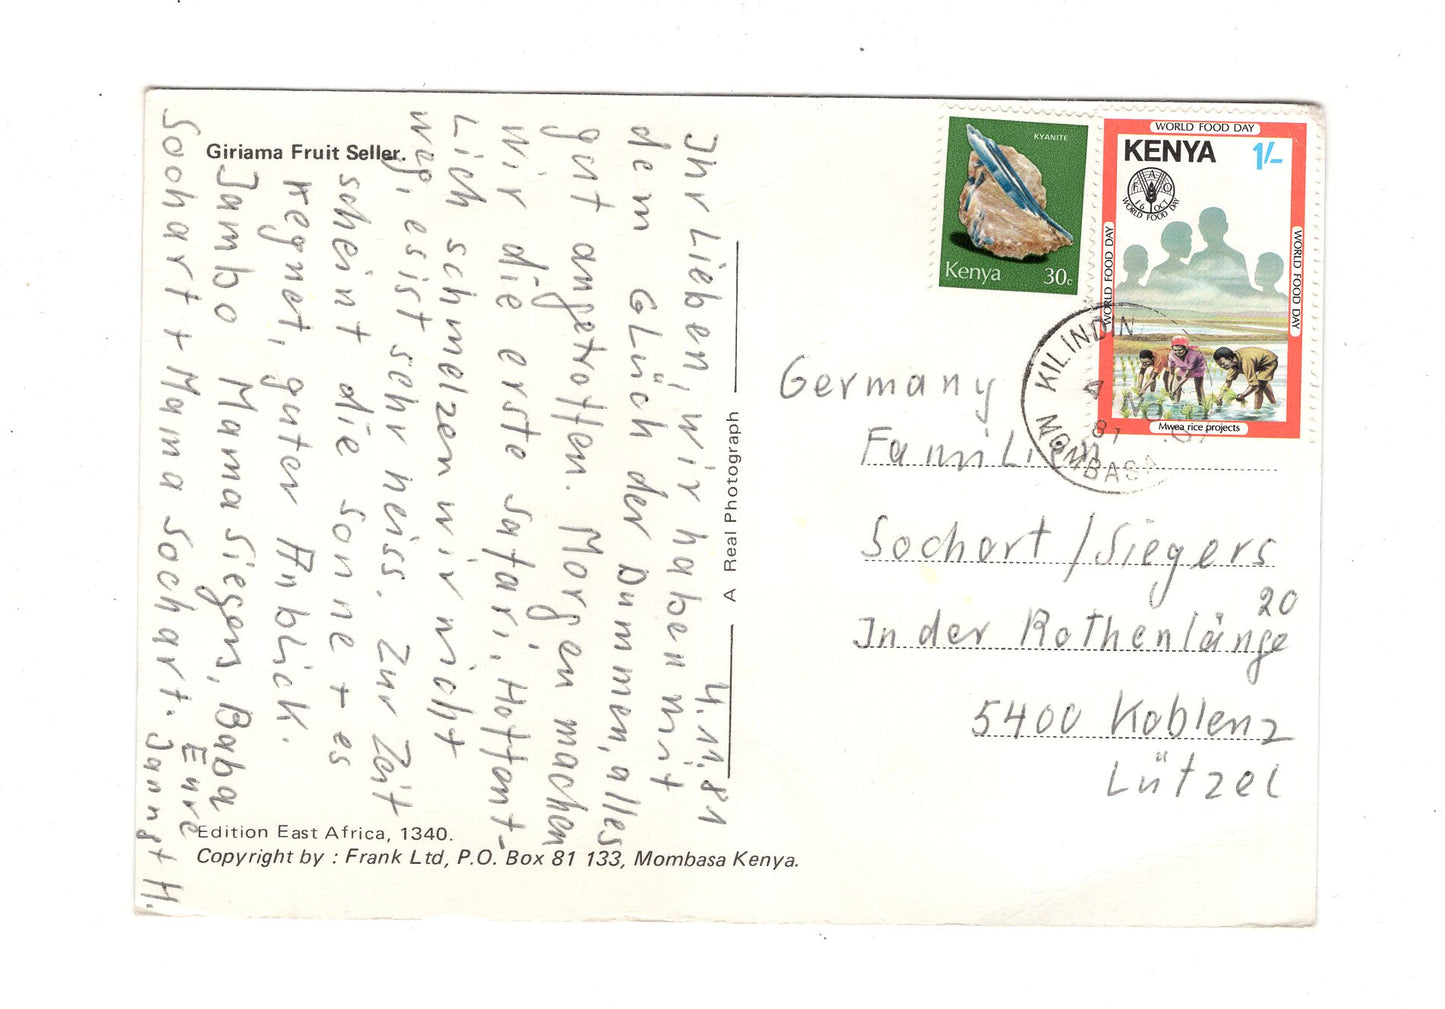 Giriama Fruit Seller.
4.11.81
Ihr Lieben, wir haben mit
dem Glück der Dummen, alles
gut angetroffen. Morgen machen
wir die erste Safari, Hoffent-
lich schmelzen wir nicht
weg, es ist sehr heiss. Zur Zeit
scheint die Sonne + es
regnet, guter Anblick.
Jambo Mama Siegers, Baba
Sochart + Mama Sochart. Eure
H.
A Real Photograph
Edition East Africa, 1340.
Copyright by : Frank Ltd, P.O. Box 81 133, Mombasa Kenya.
KYANITE
Kenya 30c
WORLD FOOD DAY
KENYA 1/-
FAO
16 OCT
WORLD FOOD DAY
WORLD FOOD DAY
WORLD FOOD DAY
Mwea rice projects
KILINDIN
4 NO
81
MOMBASA
Germany
Familien
Sochart / Siegers
In der Rothenlänge 20
5400 Koblenz
Lützel